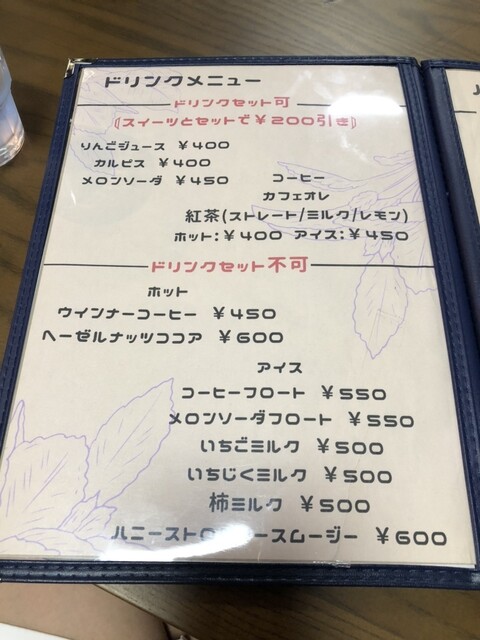 ドリンクメニュー
ドリンクセット可
(スイーツとセットで￥200引き)
りんごジュース ￥400
カルピス ￥400
メロンソーダ ￥450
コーヒー
カフェオレ
紅茶(ストレート/ミルク/レモン)
ホット:￥400 アイス:￥450
ドリンクセット不可
ホット
ウインナーコーヒー ￥450
ヘーゼルナッツココア ￥600
アイス
コーヒーフロート ￥550
メロンソーダフロート ￥550
いちごミルク ￥500
いちじくミルク ￥500
柿ミルク ￥500
￥600